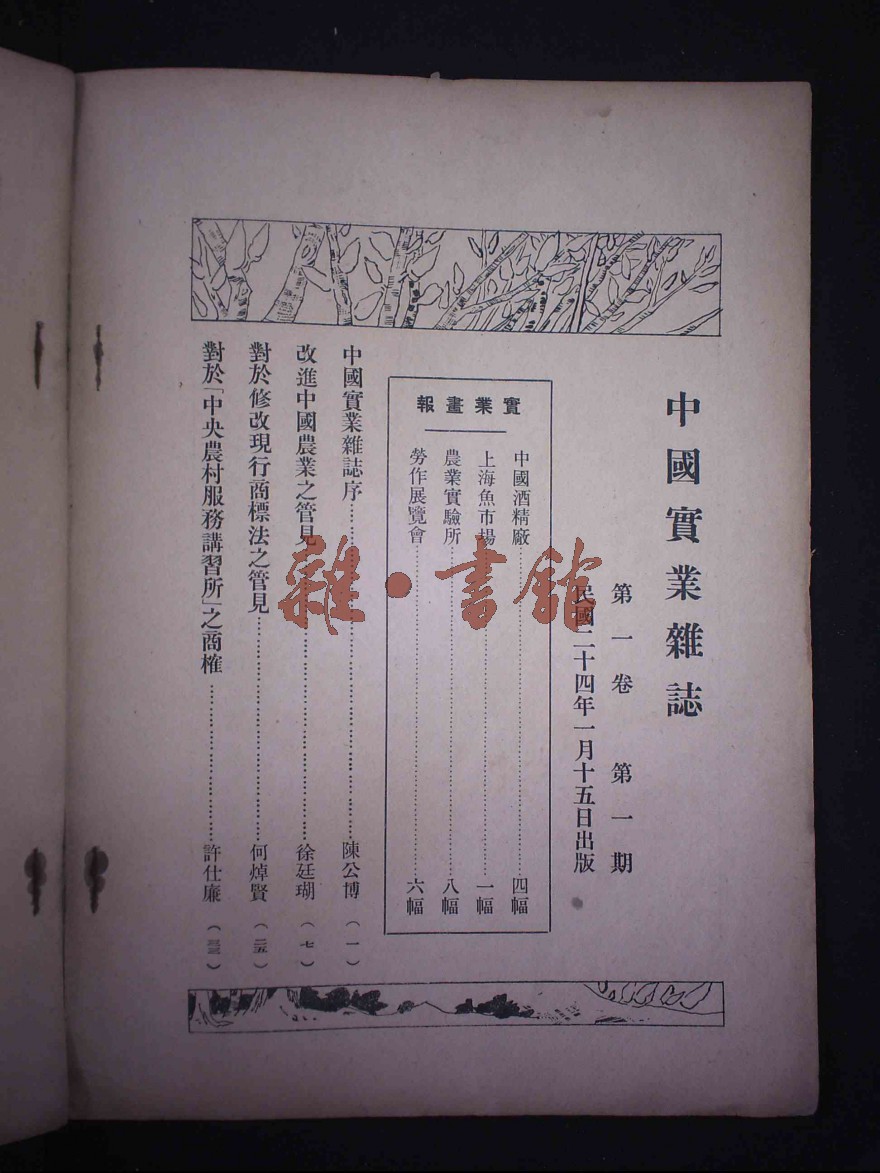 中國實業雜誌
第一卷 第一期
民國二十四年一月十五日出版
實業畫報
中國酒精廠……四幅
上海魚市場……一幅
農業實驗所……八幅
勞作展覽會……六幅
中國實業雜誌序……陳公博(一)
改進中國農業之管見……徐廷瑚(七)
對於修改現行商標法之管見……何焯賢(二五)
對於「中央農村服務講習所」之商榷……許仕廉(三三)
雜·書館